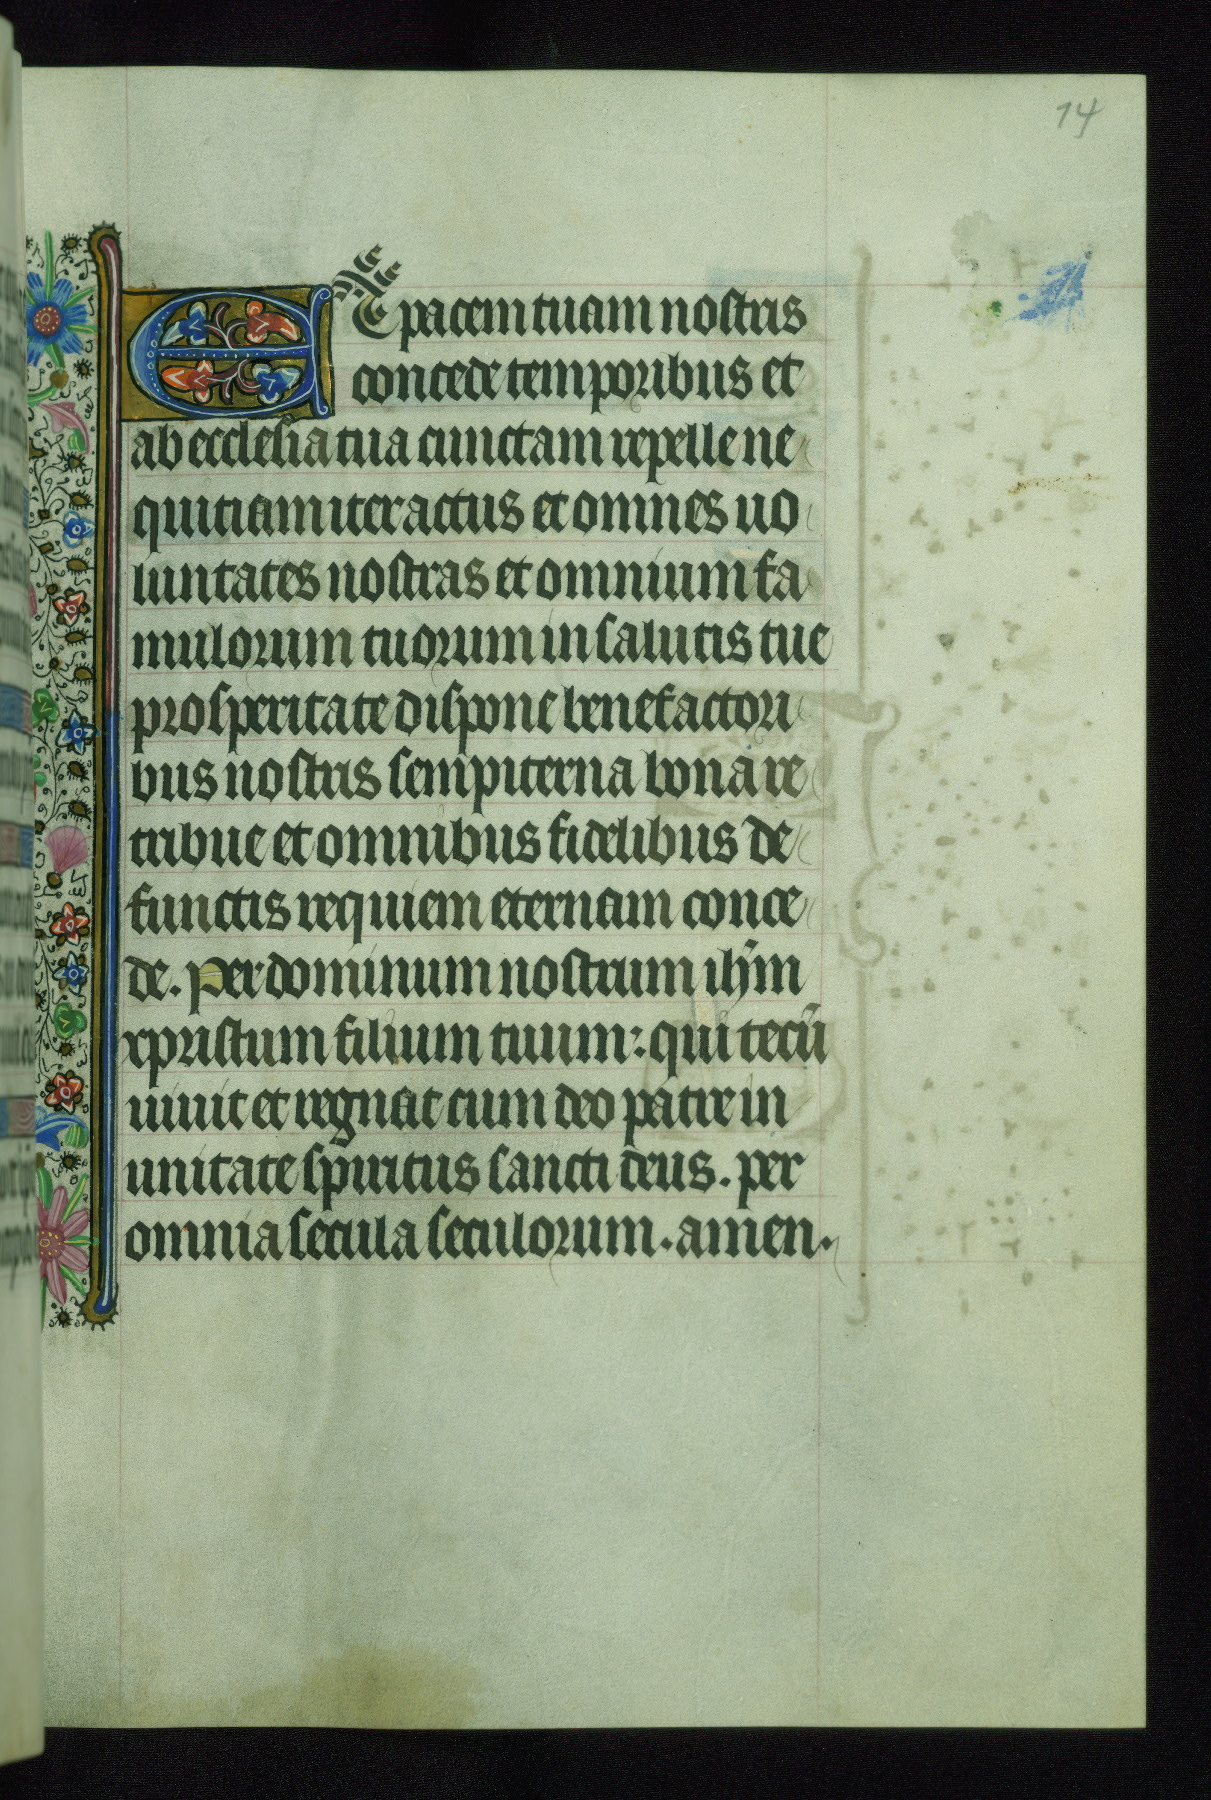 14
Et pacem tuam nostris
concede temporibus et
ab ecclesia tua cunctam repelle ne
quitiam iter actus et omnes uo
luntates nostras et omnium fa
mulorum tuorum in salutis tue
prosperitate dispone benefactori
bus nostris sempiterna bona re
tribue et omnibus fidelibus de
functis requiem eternam conce
de. Per dominum nostrum ihm̄
xpristum filium tuum: qui tecū
uiuit et regnat cum deo patre in
unitate spiritus sancti deus. per
omnia secula seculorum. amen.